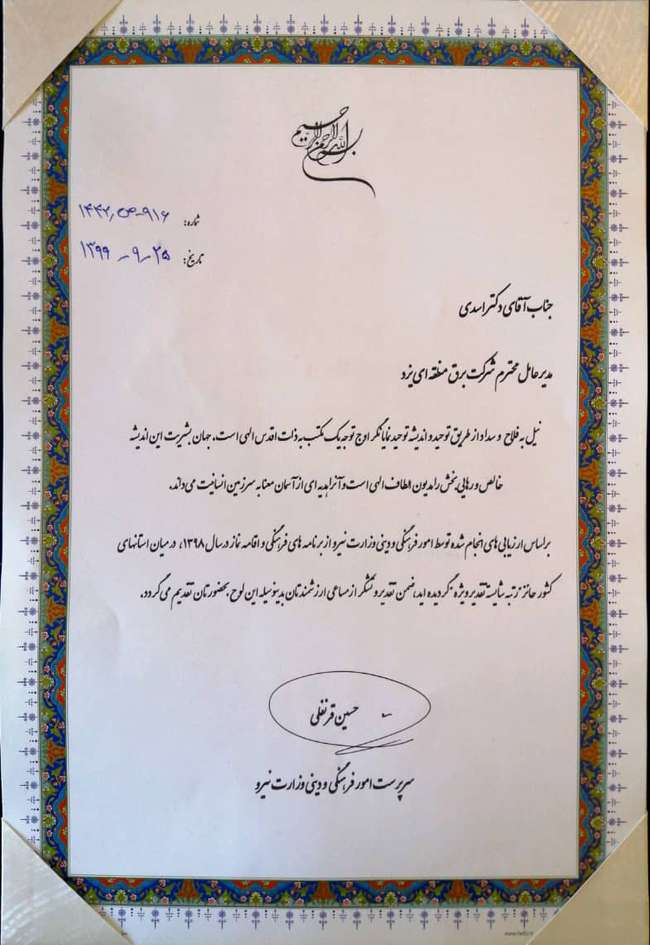 بسم الله الرحمن الرحیم
شماره: ۹۱۶-ص/۱۴۴۲
تاریخ: ۲۵-۹-۱۳۹۹
جناب آقای دکتر اسدی
مدیر عامل محترم شرکت برق منطقه ای یزد
نیل به فلاح و سداد از طریق توحید و اندیشه توحید نمایانگر اوج توجه یک مکتب به ذات اقدس الهی است. جهان بشریت این اندیشه
خالص و رهایی بخش را مدیون الطاف الهی است و آنرا هدیه ای از آسمان معنا به سرزمین انسانیت می داند.
براساس ارزیابی های انجام شده توسط امور فرهنگی و دینی وزارت نیرو از برنامه های فرهنگی و اقامه نماز در سال ۱۳۹۸، در میان استانهای
کشور حائز رتبه شایسته تقدیر ویژه گردیده اید، ضمن تقدیر و تشکر از مساعی ارزشمندتان بدینوسیله این لوح بحضورتان تقدیم می گردد.
حسین قرنفلی
سرپرست امور فرهنگی و دینی وزارت نیرو